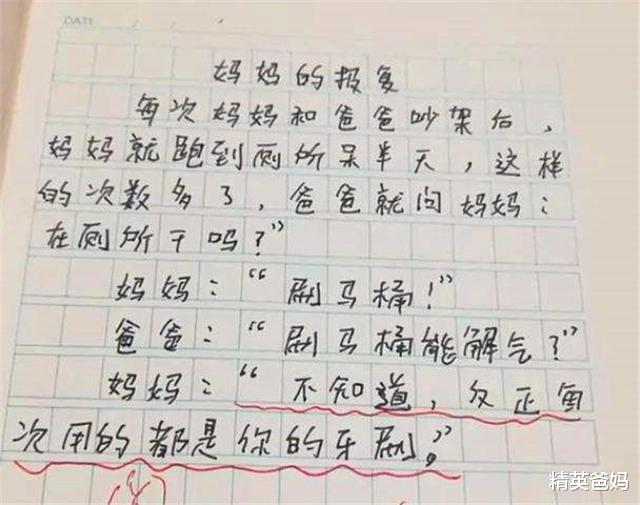 DATE
妈妈的报复
每次妈妈和爸爸吵架后，
妈妈就跑到厕所呆半天，这样
的次数多了，爸爸就问妈妈：
在厕所干吗？”
妈妈：“刷马桶！”
爸爸：“刷马桶能解气？”
妈妈：“不知道，反正每
次用的都是你的牙刷。”
精英爸妈